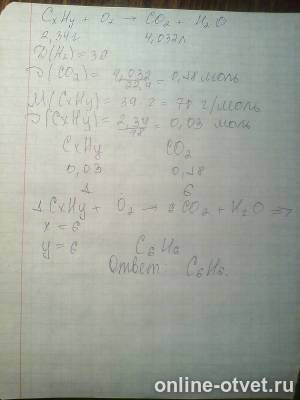 CxHy + O₂ → CO₂ + H₂O
2,34г 4,032л
D(H₂) = 39
ν(CO₂) = 4,032/22,4 = 0,18 моль
M(CxHy) = 39·2 = 78 г/моль
ν(CxHy) = 2,34/78 = 0,03 моль
CxHy CO₂
0,03 0,18
1 6
1 CxHy + O₂ → 6CO₂ + H₂O ⇒
x = 6
y = 6 C₆H₆
Ответ: C₆H₆.
online-otvet.ru